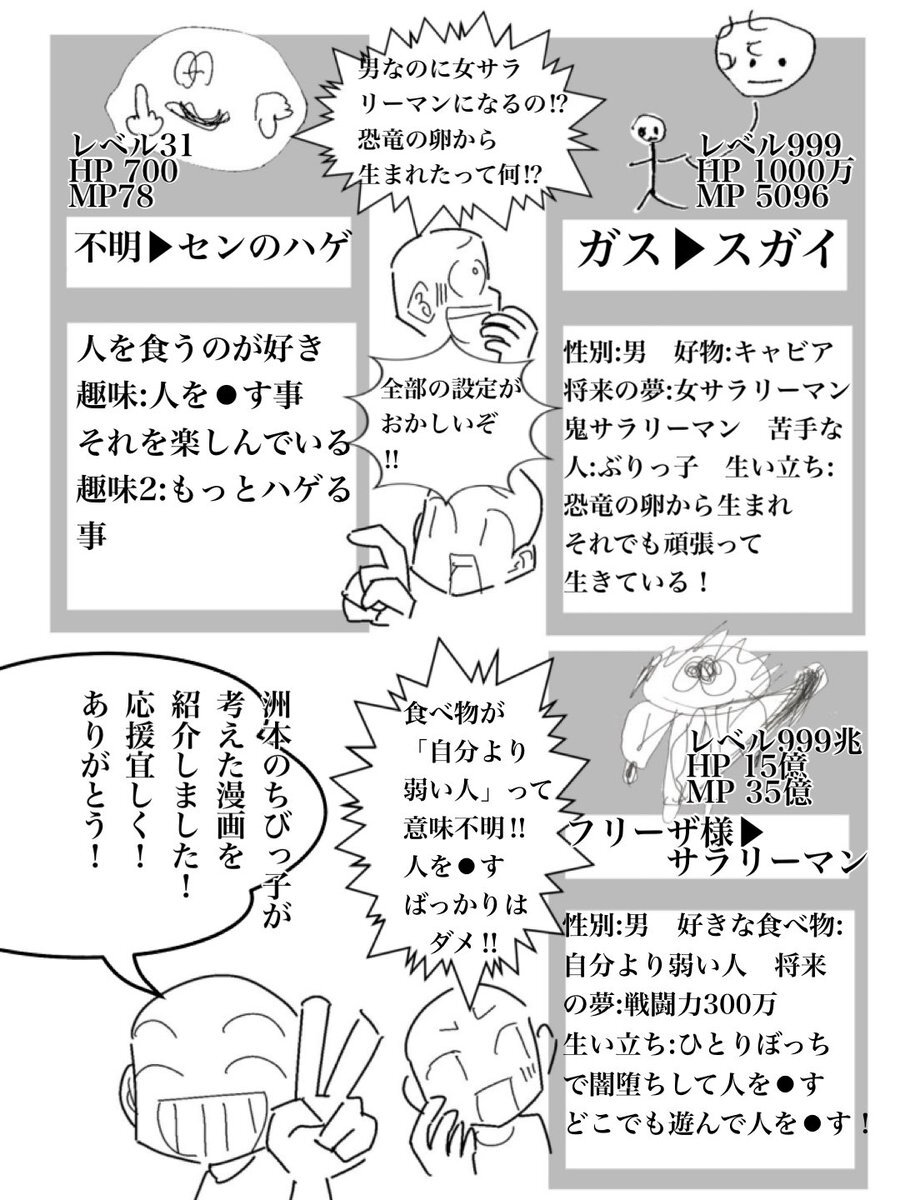 男なのに女サラ
リーマンになるの!?
恐竜の卵から
生まれたって何!?
レベル999
HP 1000万
MP 5096
ガス▶スガイ
性別:男　好物:キャビア
将来の夢:女サラリーマン
鬼サラリーマン　苦手な
人:ぶりっ子　生い立ち:
恐竜の卵から生まれ
それでも頑張って
生きている！
レベル31
HP 700
MP78
不明▶センのハゲ
人を食うのが好き
趣味:人を●す事
それを楽しんでいる
趣味2:もっとハゲる
事
全部の設定が
おかしいぞ
!!
レベル999兆
HP 15億
MP 35億
フリーザ様▶
サラリーマン
性別:男　好きな食べ物:
自分より弱い人　将来
の夢:戦闘力300万
生い立ち:ひとりぼっち
で闇堕ちして人を●す
どこでも遊んで人を●す！
食べ物が
「自分より
弱い人」って
意味不明!!
人を●す
ばっかりは
ダメ!!
洲本のちびっ子が
考えた漫画を
紹介しました！
応援宜しく！
ありがとう！